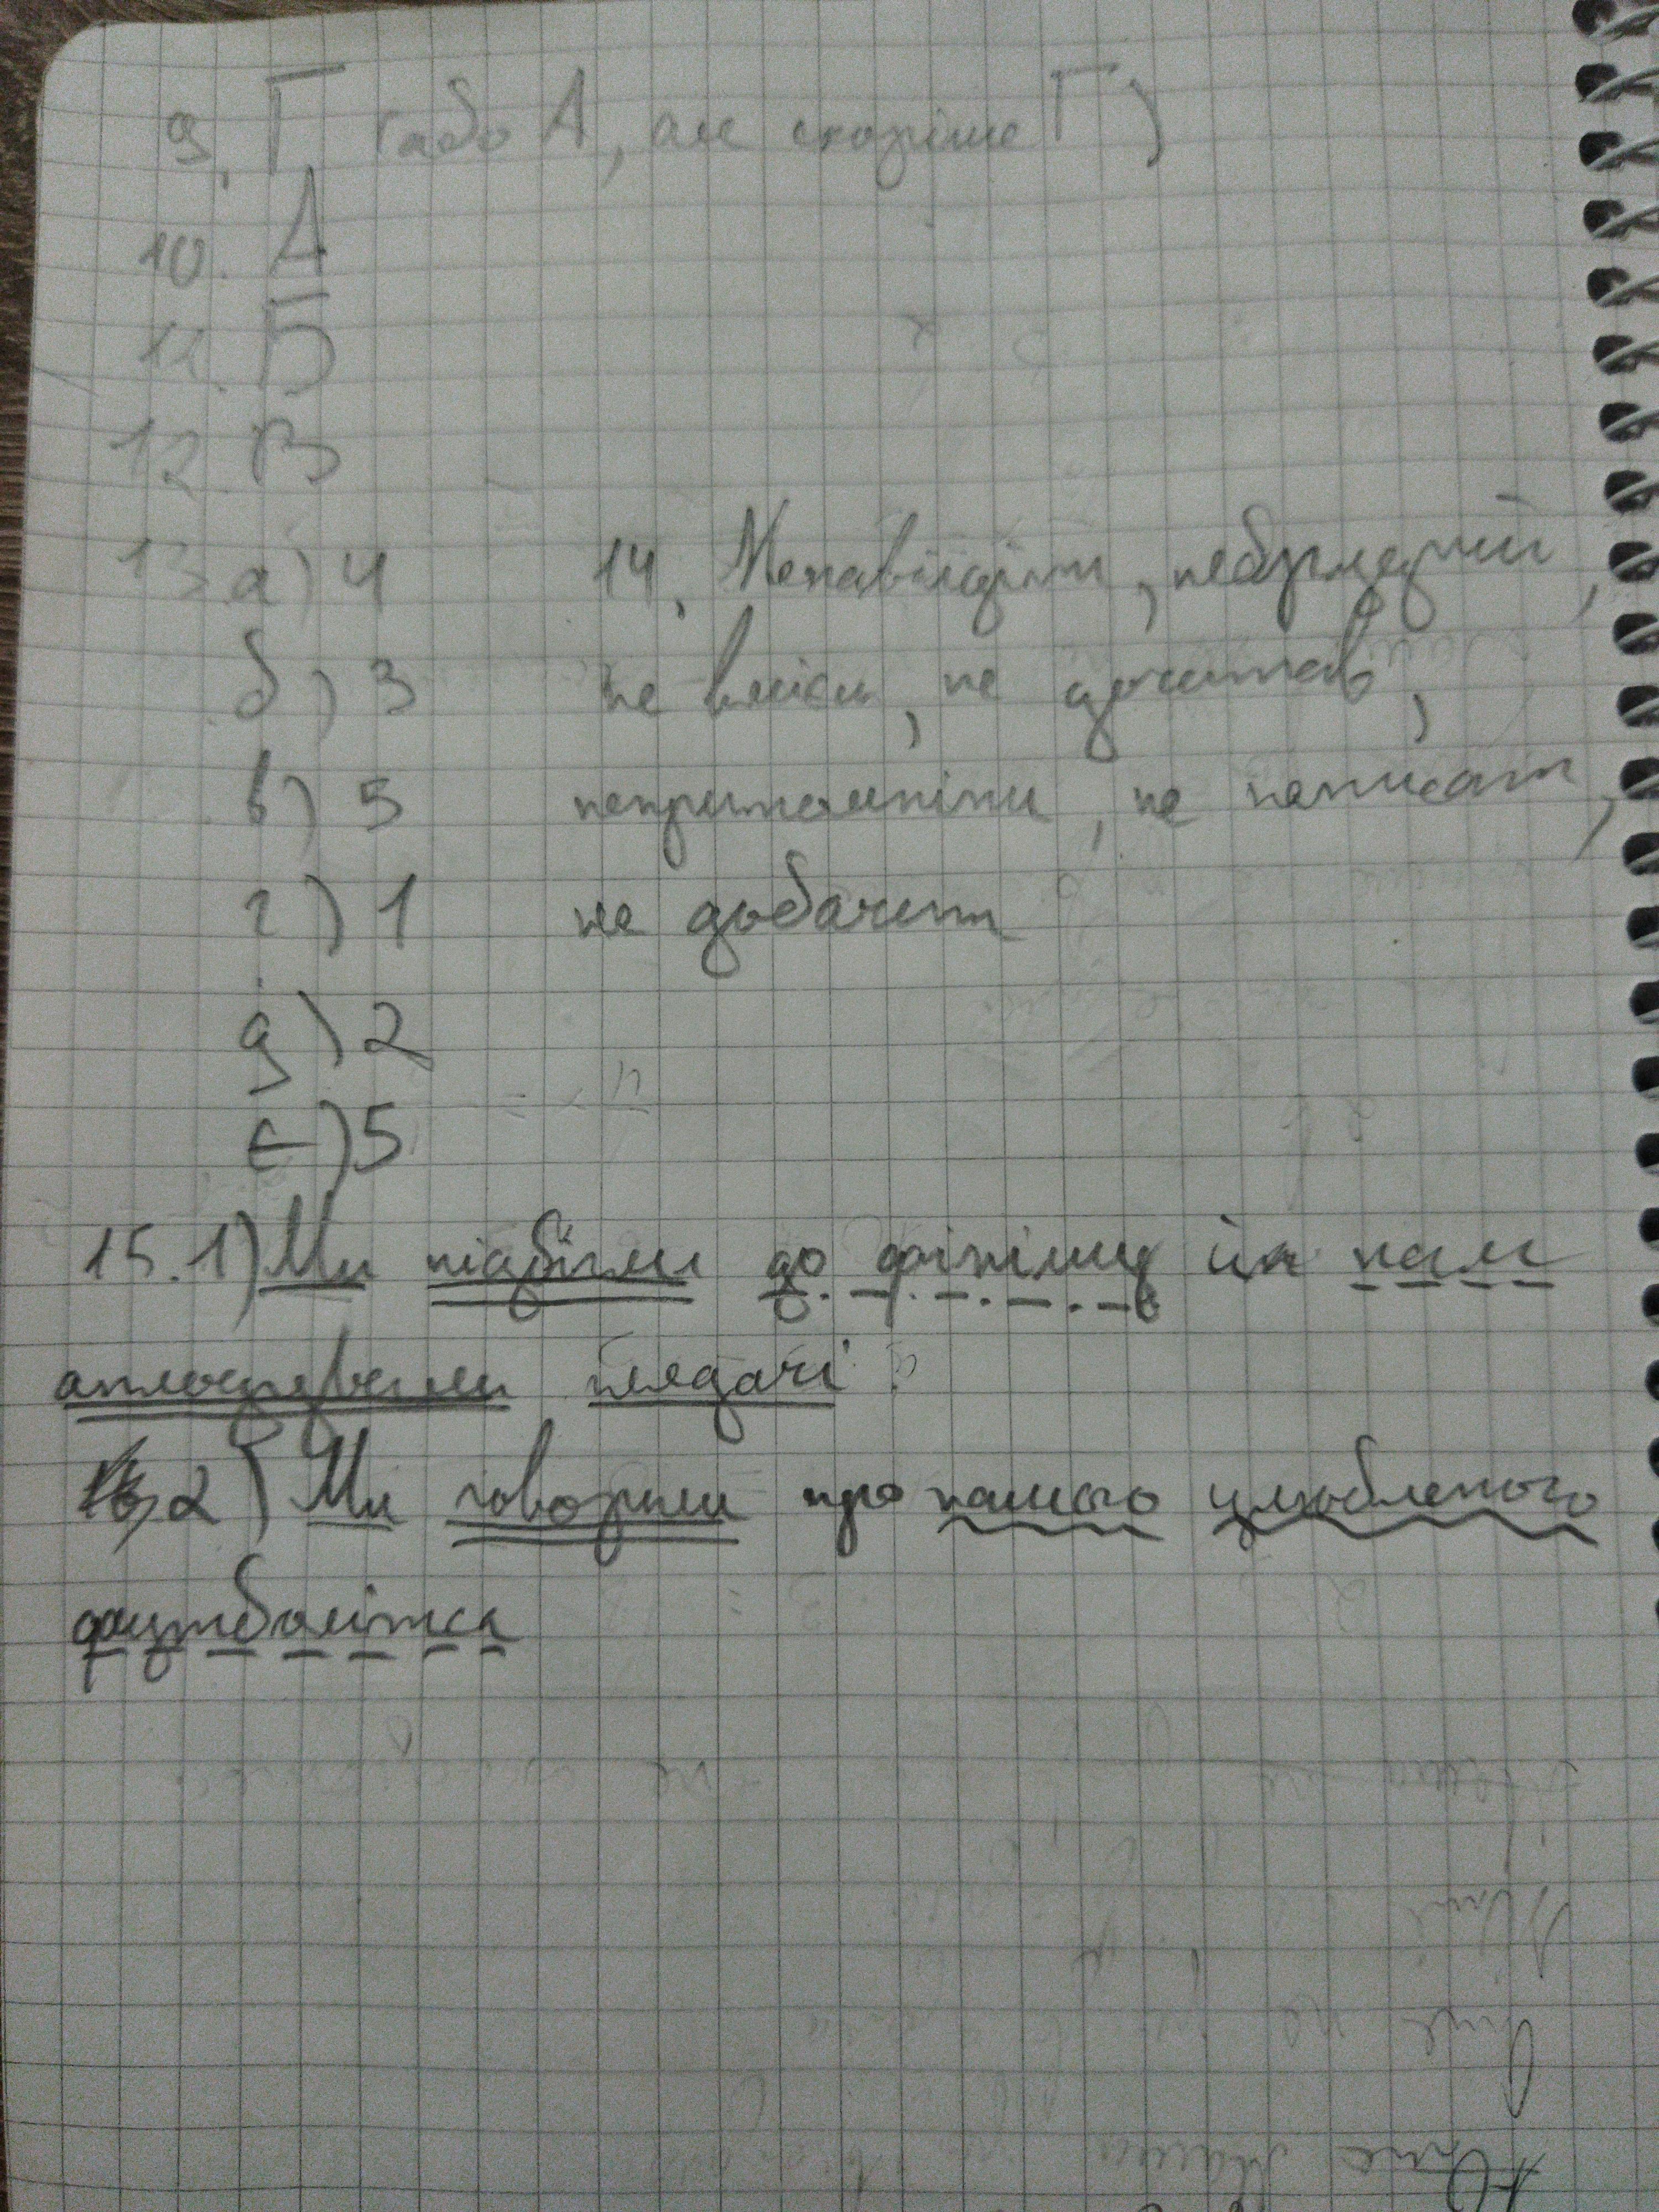 9. Г (або А, але скоріше Г)
10. А
11. Б
12. В
13. а) 4
б) 3
в) 5
г) 1
д) 2
є) 5
14. Ненавидіти,
не вміли, не дочитав,
непритомніти, не написати,
не добачити
15. 1) Ми підбігли до фінішу їх нам
аплодували глядачі.
2) Ми говорили про нашого улюбленого
футболіста